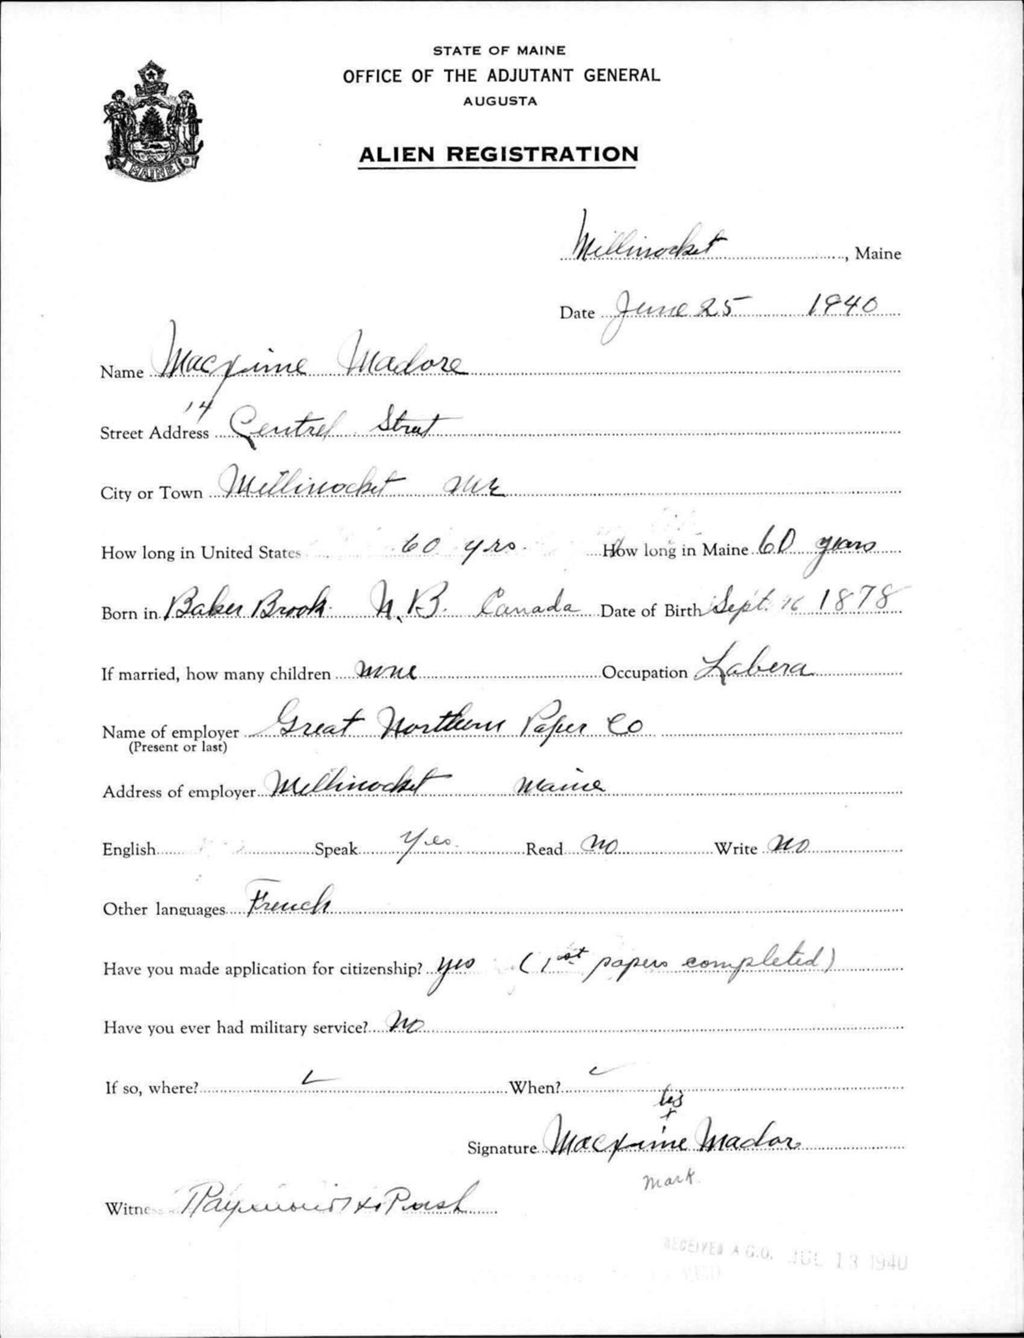 STATE OF MAINE
OFFICE OF THE ADJUTANT GENERAL
AUGUSTA
ALIEN REGISTRATION
MAINE
Millinocket, Maine
Date June 25 1940
Name Macxime Madore
14
Street Address Centrel Street
City or Town Millinocket Me
How long in United States 60 yrs. How long in Maine 60 years
Born in Baker Brook N.B. Canada Date of Birth Sept. 16 1878
If married, how many children none Occupation Labera
Name of employer Great Northern Paper Co
(Present or last)
Address of employer Millinocket Maine
English Speak Yes Read No Write No
Other languages French
Have you made application for citizenship? yes (1st papers completed)
Have you ever had military service? No
If so, where? When?
his
x
Signature Macxime Mador
mark
Witness Raymond
RECEIVED A.G.O. JUL 13 1940